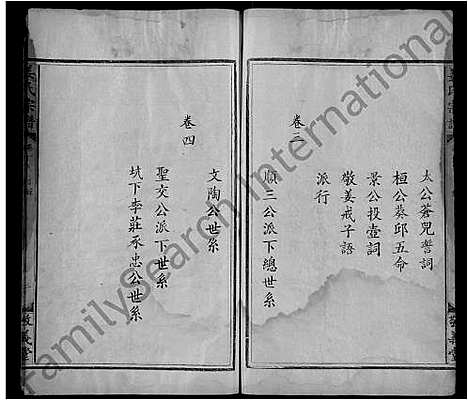 太公蒼兕誓詞
桓公葵邱五命
景公投壺詞
敬姜戒子語
派行
卷三
順三公派下總世系
文陶公世系
卷四
聖交公派下世系
坑下李莊承忠公世系
敬義堂
FamilySearch International